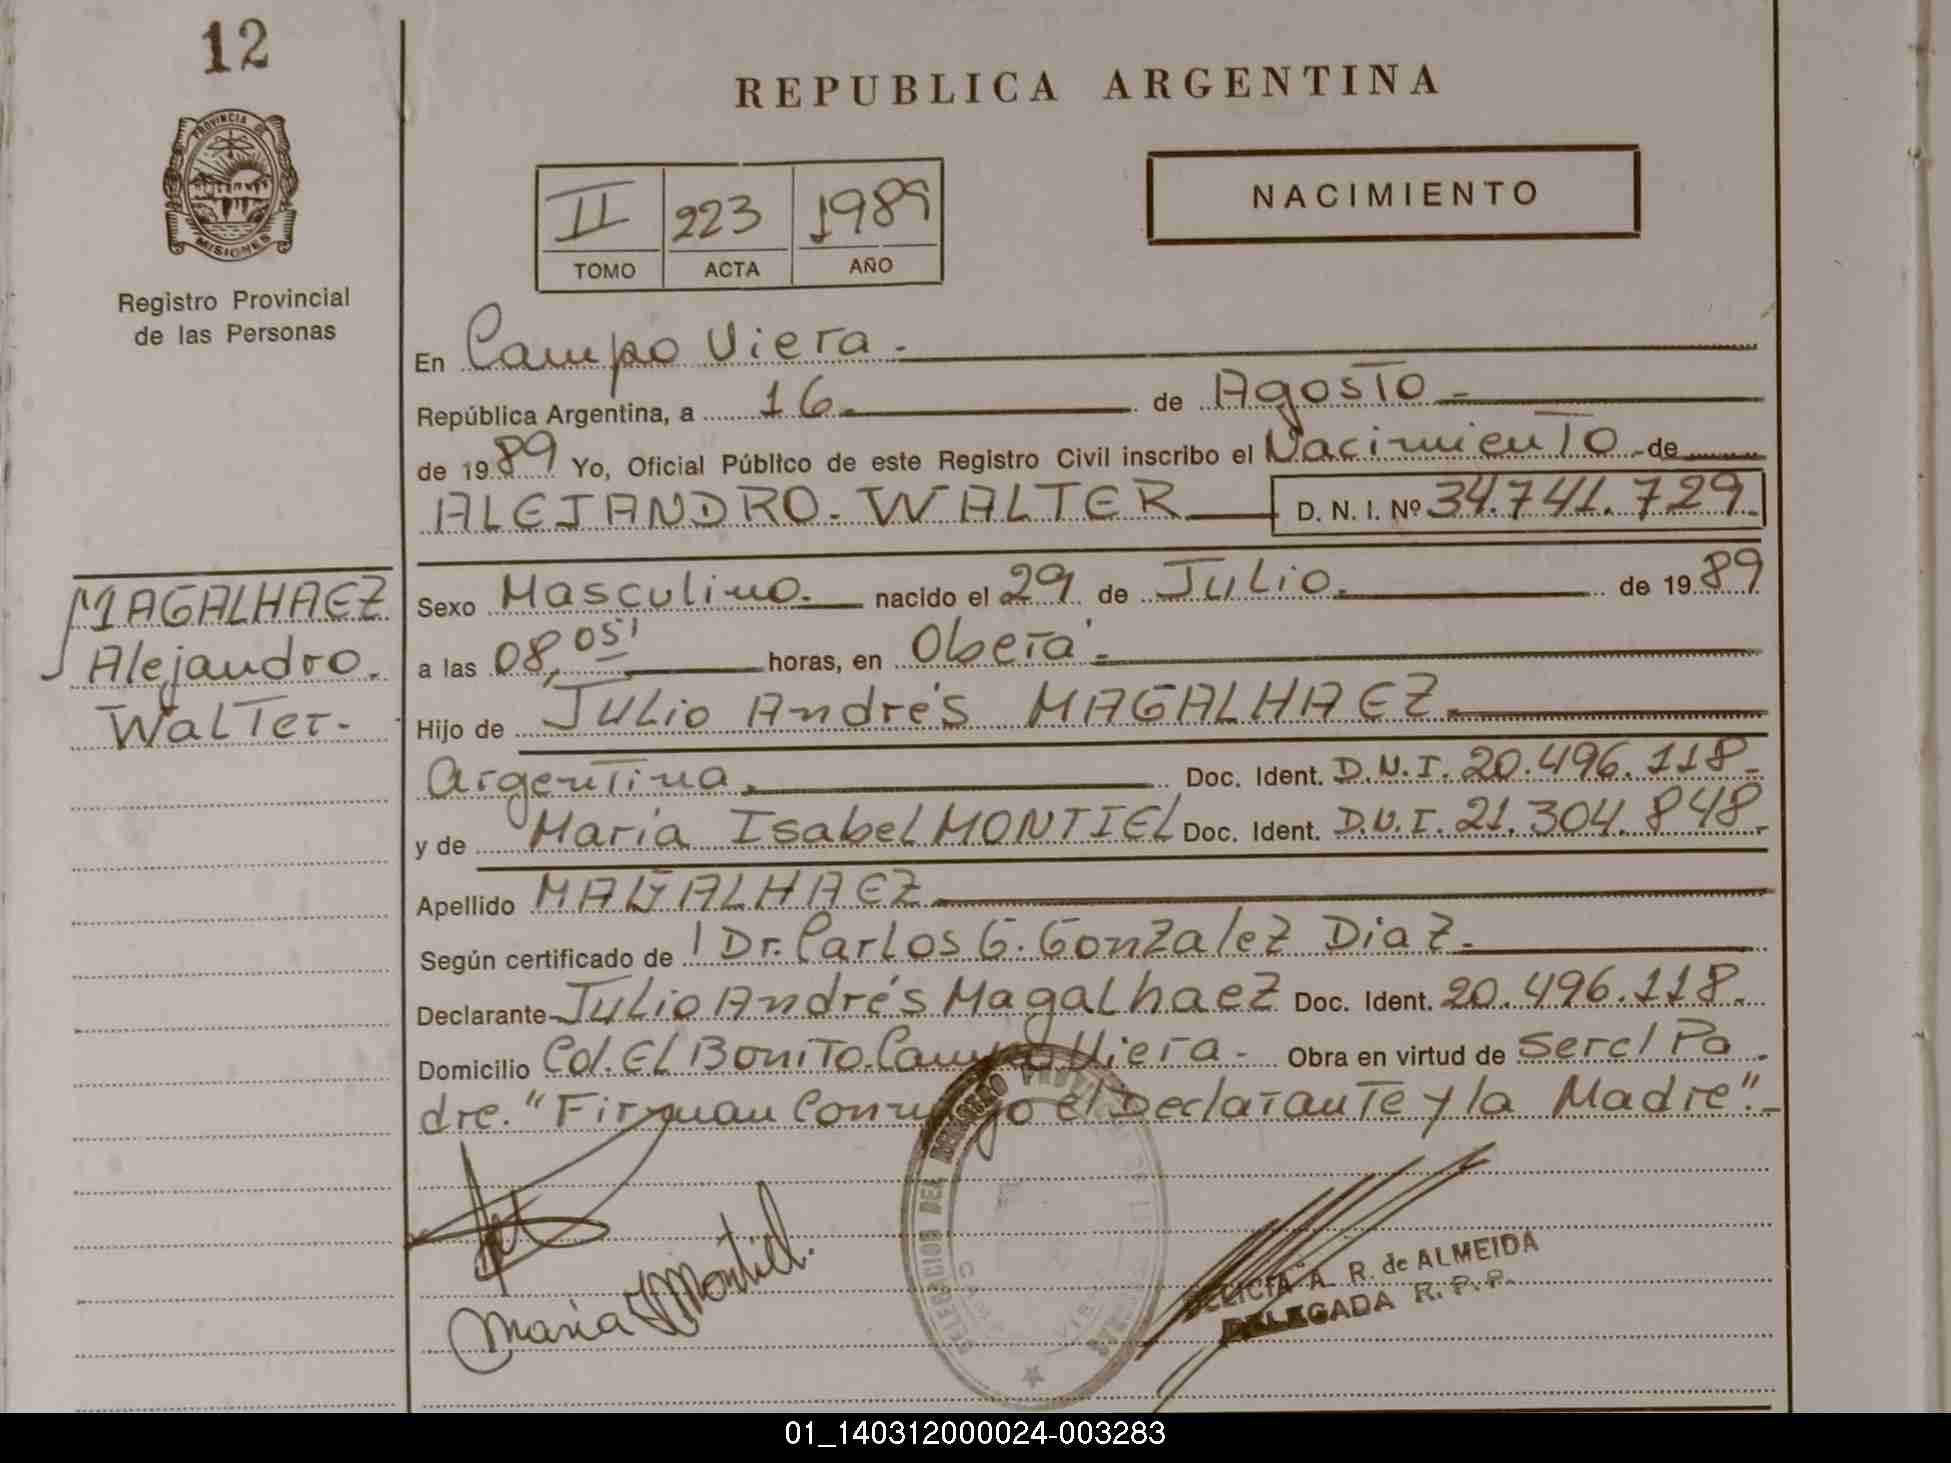 12
REPUBLICA ARGENTINA
PROVINCIA DE
MISIONES
Registro Provincial
de las Personas
II 223 1989
TOMO ACTA AÑO
NACIMIENTO
En Campo Viera.
República Argentina, a 16. de Agosto
de 1989 Yo, Oficial Público de este Registro Civil inscribo el Nacimiento de
ALEJANDRO. WALTER D. N. I. Nº 34.741.729.
MAGALHAEZ
Alejandro.
Walter.
Sexo Masculino. nacido el 29 de Julio. de 1989
a las 08,05' horas, en Oberá.
Hijo de Julio Andrés MAGALHAEZ.
Argentina. Doc. Ident. D.N.I. 20.496.118.
y de María Isabel MONTIEL Doc. Ident. D.N.I. 21.304.848.
Apellido MAGALHAEZ
Según certificado de Dr. Carlos G. Gonzalez Diaz.
Declarante Julio Andrés Magalhaez Doc. Ident. 20.496.118.
Domicilio Col. El Bonito. Campo Viera. Obra en virtud de Ser el Pa
dre. "Firman Conmigo el Declarante y la Madre".
Maria I Montiel.
A. R. de ALMEIDA
DELEGADA R. P. P.
01_140312000024-003283